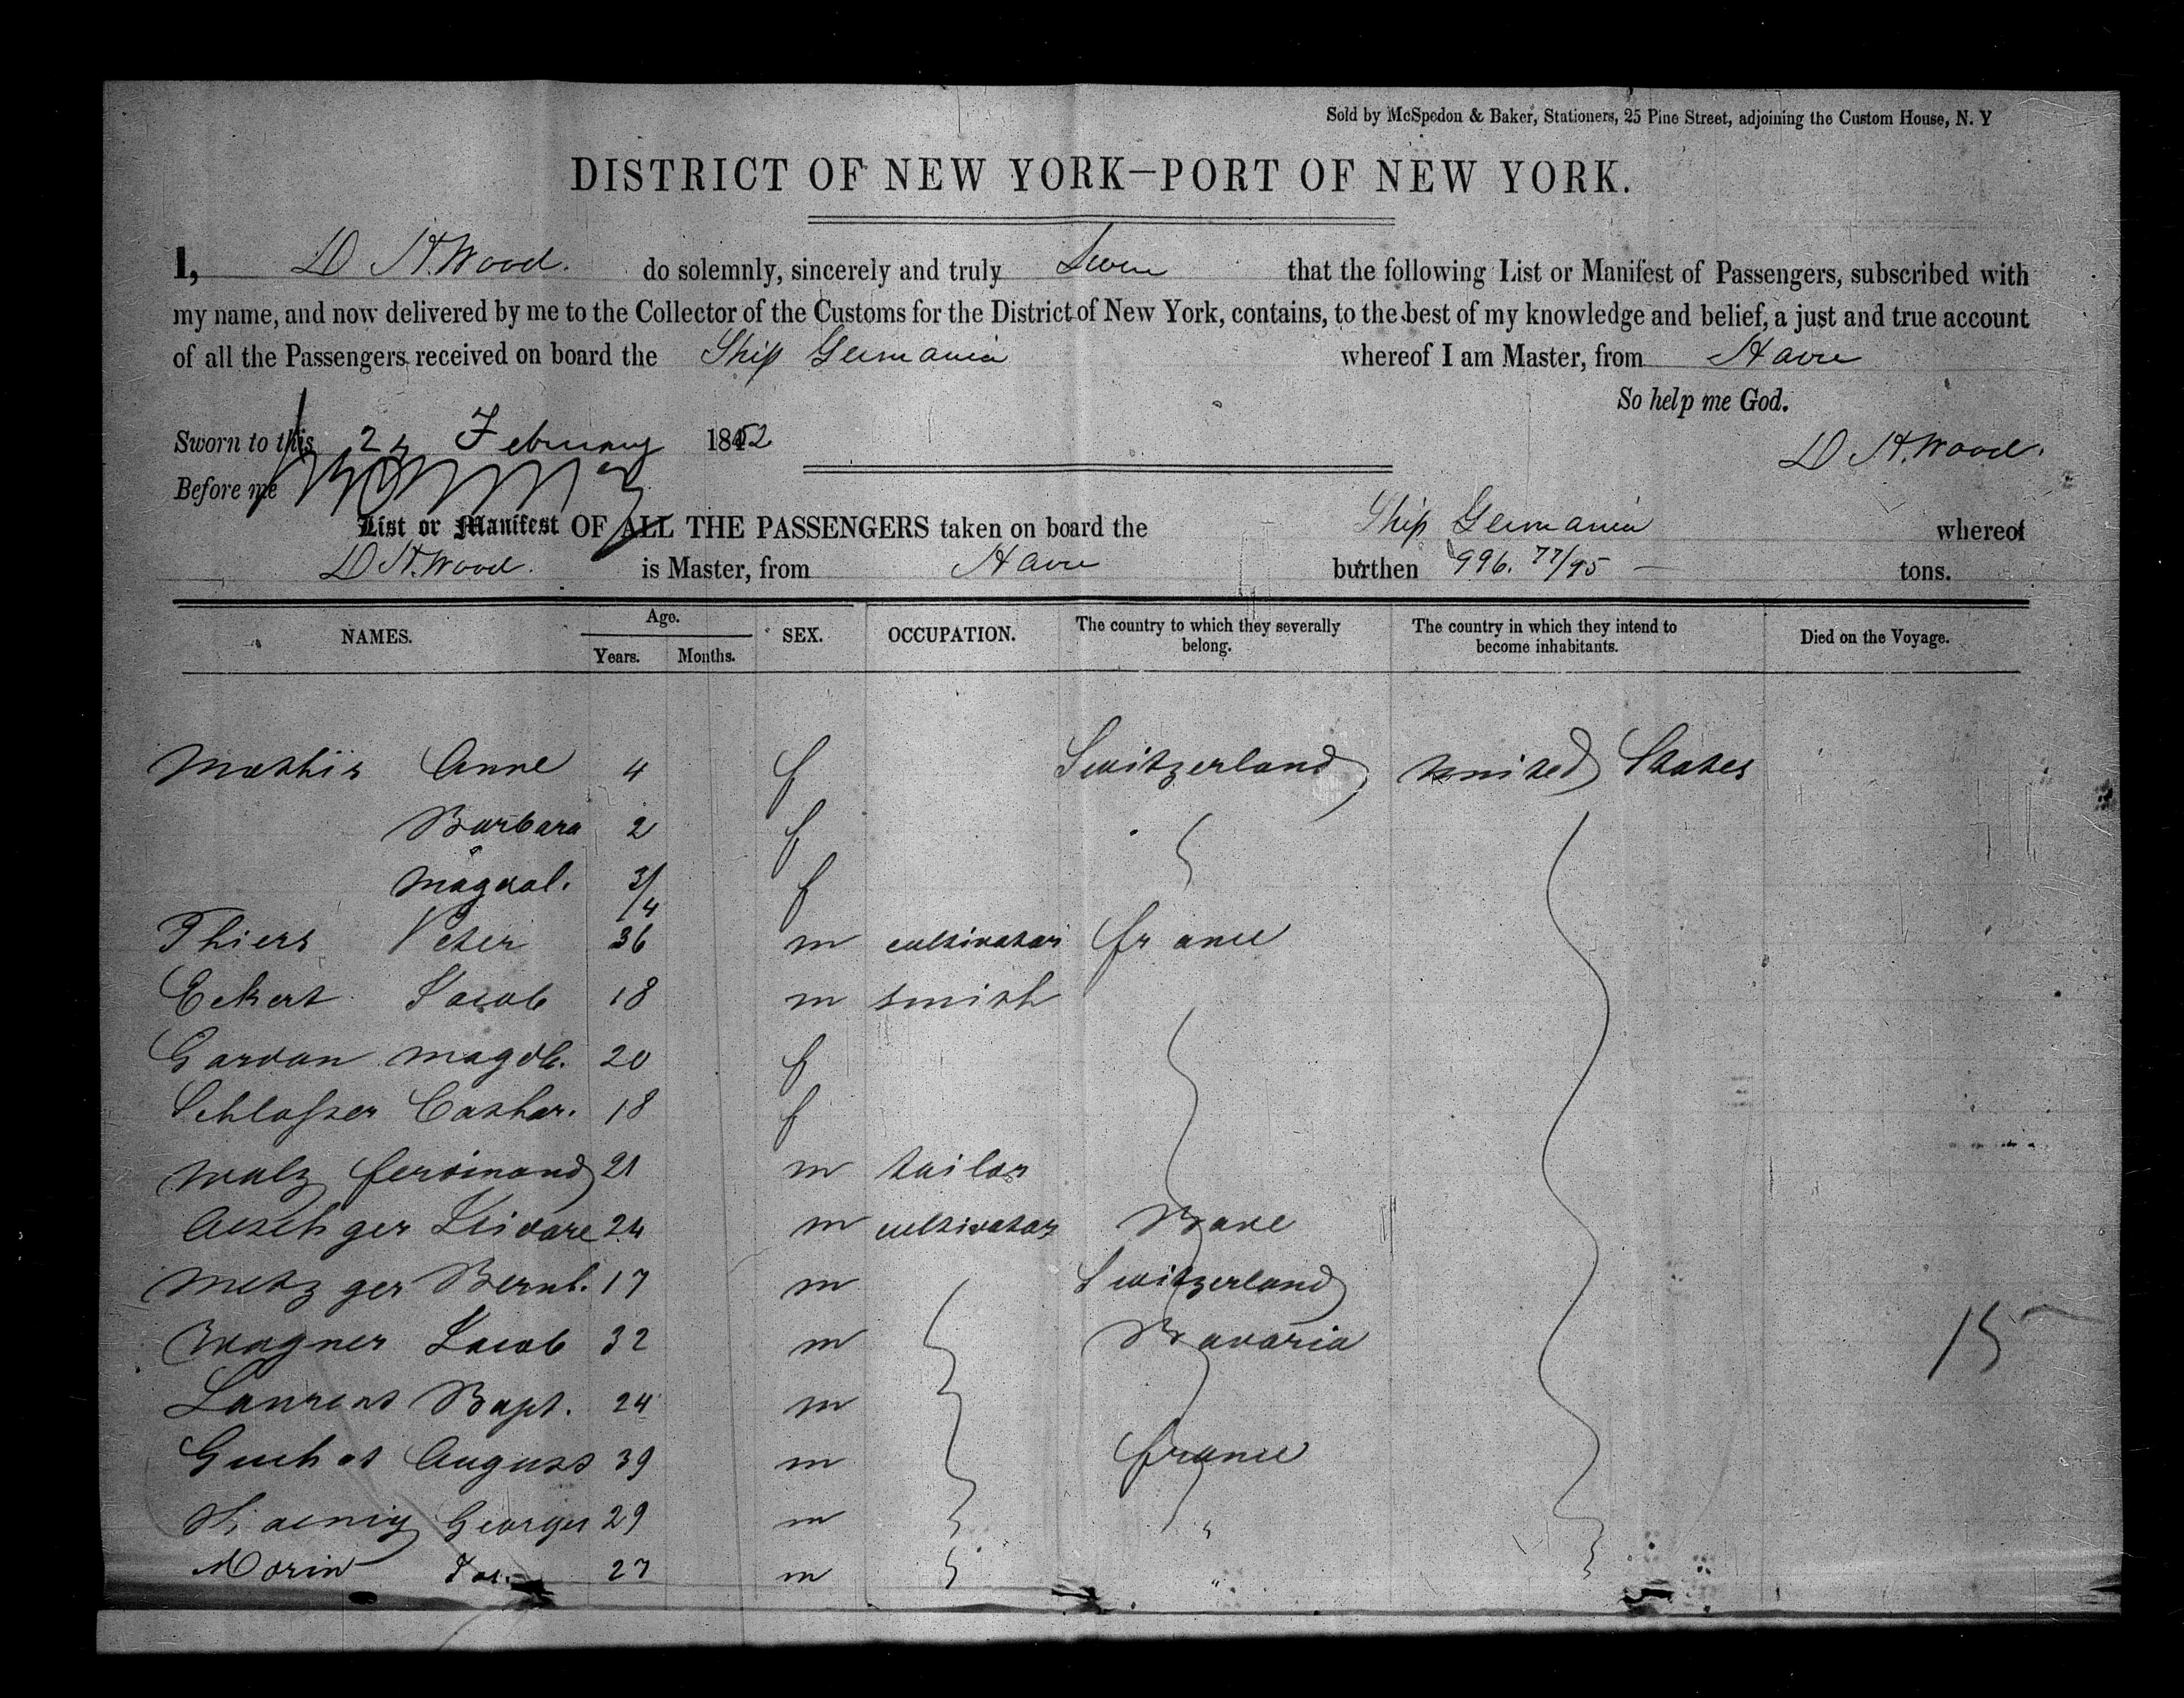 Sold by McSpedon & Baker, Stationers, 25 Pine Street, adjoining the Custom House, N. Y
DISTRICT OF NEW YORK—PORT OF NEW YORK.
I, D H. Wood. do solemnly, sincerely and truly that the following List or Manifest of Passengers, subscribed with
my name, and now delivered by me to the Collector of the Customs for the District of New York, contains, to the best of my knowledge and belief, a just and true account
of all the Passengers received on board the Ship Germania whereof I am Master, from Havre
So help me God.
Sworn to this 24 February 1852
D H. Wood.
Before me
List or Manifest OF ALL THE PASSENGERS taken on board the Ship Germania whereof
D H. Wood. is Master, from Havre burthen 996. 77/95 tons.
NAMES. Age. Years. Months. SEX. OCCUPATION. The country to which they severally belong. The country in which they intend to become inhabitants. Died on the Voyage.
Mathis Anne 4 f Switzerland United States
Barbara 2 f
Magdal. 3/4 f
Thiers Peter 36 m cultivator france
Eckert Jacob 18 m smith
Gardan Magdl. 20 f
Schlosser Cathar. 18 f
Walz ferdinand 21 m tailor
Aeschger 24 m cultivator Bade
Metzger Bernh. 17 m Switzerland
Wagner Jacob 32 m Bavaria
15
Laurent Bapt. 24 m
August 39 m france
Georges 29 m "
Morin Jos. 27 m "